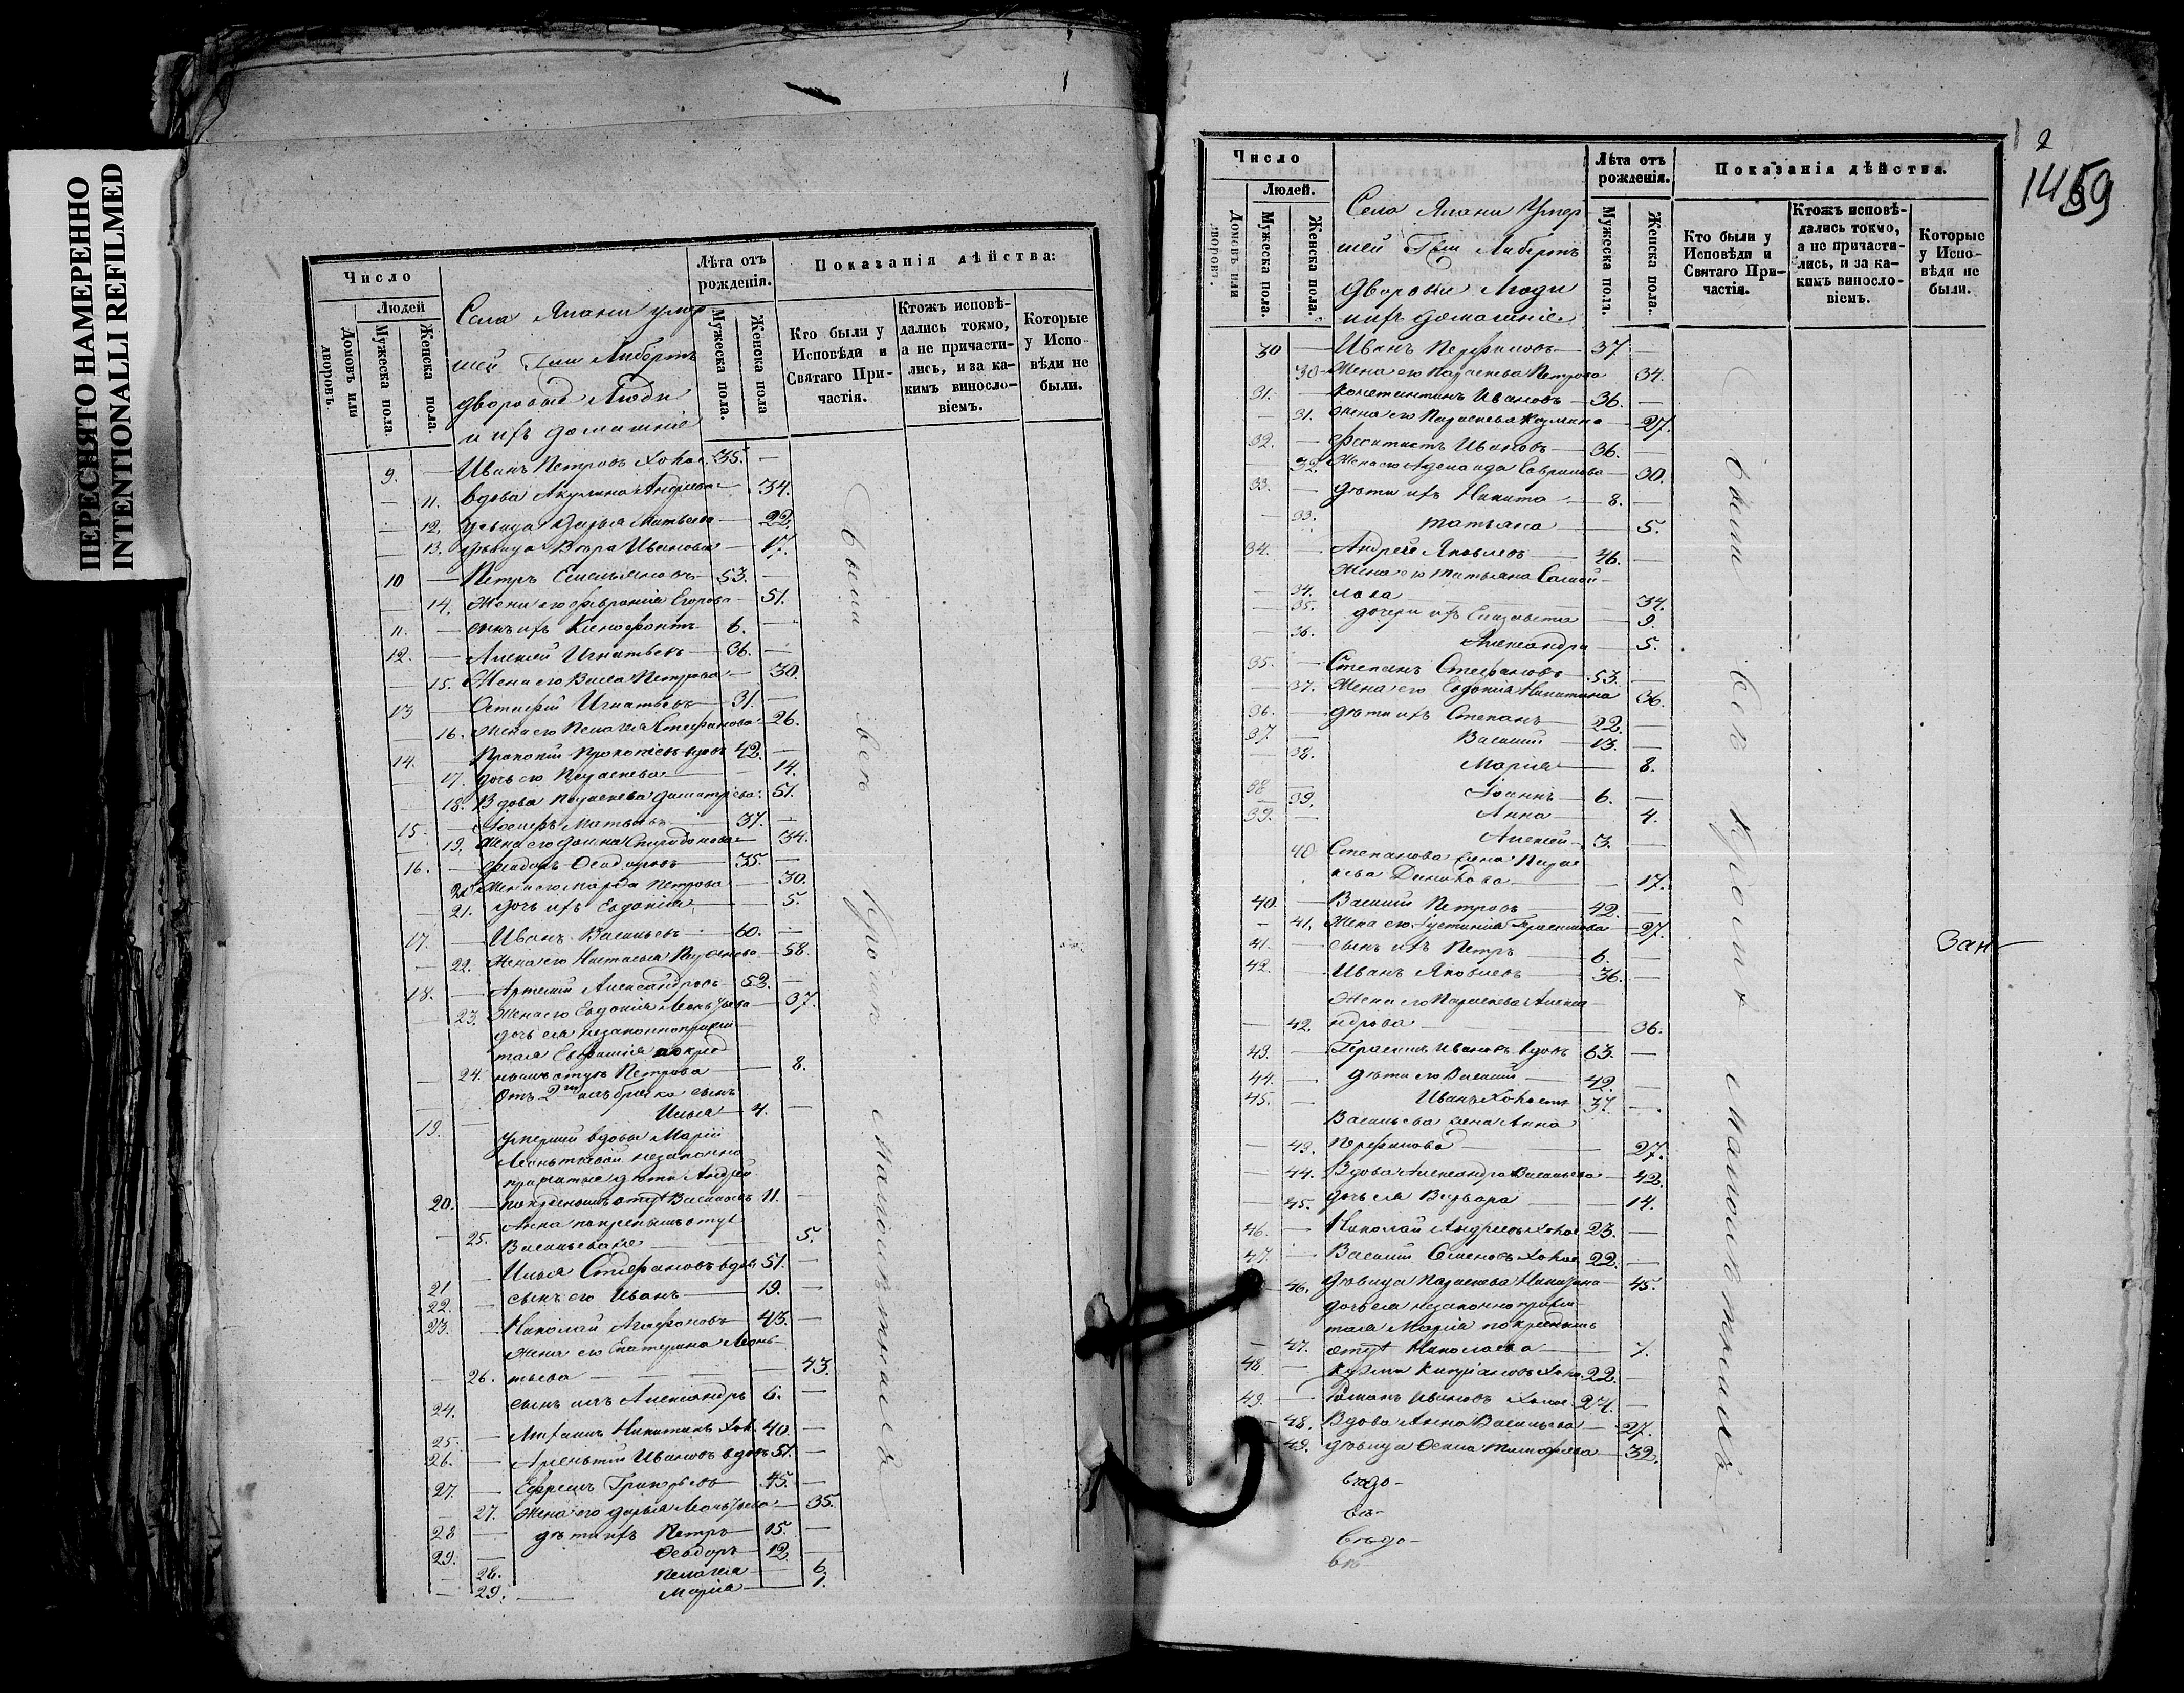 ПЕРЕСНЯТО НАМЕРЕННО
INTENTIONALLI REFILMED
Число
Людей
Домовъ или дворовъ.
Мужеска пола.
Женска пола.
Села умер
шей Гжи Либертъ
дворовые Люди
и ихъ домашніе
Лѣта отъ рожденія.
Мужеска пола.
Женска пола
Показанія дѣйства:
Кто были у Исповѣди и Святаго Причастія.
Ктожъ исповѣдались токмо, а не причастились, и за какимъ винословіемъ.
Которые у Исповѣди не были.
9. — Иванъ Петровъ Холос. 35. —
— 11. Вдова Акулина Андреева — 34.
— 12. Дѣвица Дарья Матвеева — 22.
— 13. Дѣвица Вѣра Иванова — 17.
10 — Петръ Емельяновъ — 53. —
— 14. Жена его Февронія Егорова — 51.
11. — сынъ ихъ Ксенофонтъ — 6. —
12. — Алексей Игнатьевъ — 36. —
— 15. Жена его Васса Петрова — 30.
13 — Игнатьевъ — 31. —
— 16. Жена его Пелагея Стефанова — 26.
14. — Прокопій Прокопіевъ вдовъ 42. —
17. дочь его Параскева — 14.
18. Вдова Параскева Димитріева. 51.
15. — Іосифъ Матвеевъ — 37. —
19. Жена его Спиридонова — 34.
16. — Феодоръ Феодоровъ — 35. —
20. Жена его Марфа Петрова — 30.
— 21. дочь ихъ Евдокія — 5.
17. — Иванъ Васильевъ — 60. —
— 22. Жена его Настасья — 58.
18. — Артемій Александровъ — 52. —
— 23. Жена его Евдокія — 37.
дочь ея незаконноприжи
тая по крест
— 24. ному отцу Петрова — 8.
Отъ 2го брака сынъ
19. — Илья — 4. —
Умершей вдовы Маріи
незаконно
прижитые дѣти Андрей
20. — по крестному отцу Васильевъ 11. —
Анна по крестному отцу
— 25. Васильева — 5.
21 — Илья Стефановъ вдовъ 51. —
22. — сынъ его Иванъ — 19. —
23. — Николай Агафоновъ — 43. —
Жена его Екатерина Леонъ
— 26. тьева — 43.
24. сынъ ихъ Александръ 6. —
25. — Никитинъ Хол. 40. —
26. — Арсентій Ивановъ вдовъ 51. —
27. — Ефремъ Григорьевъ — 45. —
— 27. Жена его Дарья — 35.
28 — дѣти ихъ Петръ — 15. —
29. — Феодоръ — 12 —
— 28. Пелагея — 6.
— 29. — Марія — 1.
были всѣ кромѣ малолѣтныхъ
2
1459
Число
Людей.
Домовъ или дворовъ.
Мужеска пола.
Женска пола.
Села Умер
шей Гжи Либертъ
Дворовые Люди
и ихъ домашніе
Лѣта отъ рожденія.
Мужеска пола.
Женска пола.
Показанія дѣйства.
Кто были у Исповѣди и Святаго Причастія.
Ктожъ исповѣдались токмо, а не причастились, и за какимъ винословіемъ.
Которые у Исповѣди не были.
30 — Иванъ Перфиловъ — 37 —
30 — Жена его Параскева Петрова 34.
31. — Константинъ Ивановъ — 36. —
— 31. Жена его Параскева Козмина — 27.
32. — Феоктистъ Ивановъ — 36. —
— 32. Жена его Гаврилова — 30.
33. — дѣти ихъ Никита — 8. —
— 33. Татьяна — 5.
34. — Андрей Яковлевъ — 46. —
Жена его Татьяна Самой
— 34. лова — 34.
— 35. дочери ихъ Елизавета — 9.
— 36. Александра — 5.
35. — Степанъ Стефановъ — 53. —
— 37. Жена его Евдокія Никитина 36.
36. — дѣти ихъ Степанъ — 22. —
37 — Василій — 13. —
— 38. Марія — 8.
38 — Іоаннъ — 6. —
— 39. Анна — 4.
39. — Алексей — 3. —
40 Степанова жена Парас
кева — 17.
40. — Василій Петровъ — 42. —
— 41. Жена его Іустинія Герасимова — 27.
41. — сынъ ихъ Петръ — 6. —
42. — Иванъ Яковлевъ — 36. —
Жена его Параскева Алекса
— 42. ндрова — 36.
43. — Герасимъ Ивановъ вдовъ 63. —
44. — дѣти его Василій — 42. —
45. — Иванъ Холостъ 37. —
Васильева жена Анна
— 43. Перфилова — 27.
— 44. Вдова Александра Васильева — 42.
— 45. дочь ея Варвара — 14.
46. — Николай Андреевъ Холос 23. —
47. — Василій Семеновъ Холос. 22. —
46. Дѣвица Параскева — 45.
дочь ея незаконно прижи
тая Марія по крестному
— 47. отцу Николаева — 7.
48 — Козма Холос. 22. —
49. — Романъ Ивановъ Холос. 24. —
— 48. Вдова Анна Васильева — 27.
— 49. Дѣвица Тимофеева — 32.
были всѣ кромѣ малолѣтныхъ
Зан